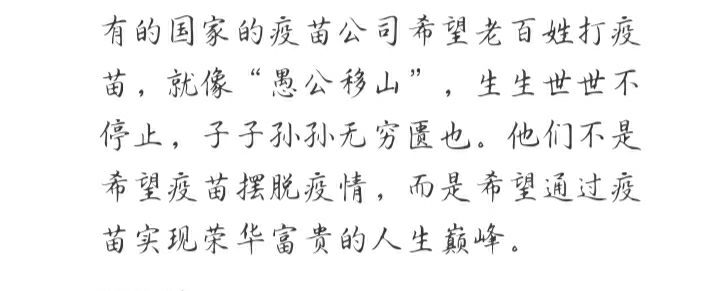 有的国家的疫苗公司希望老百姓打疫
苗，就像“愚公移山”，生生世世不
停止，子子孙孙无穷匮也。他们不是
希望疫苗摆脱疫情，而是希望通过疫
苗实现荣华富贵的人生巅峰。